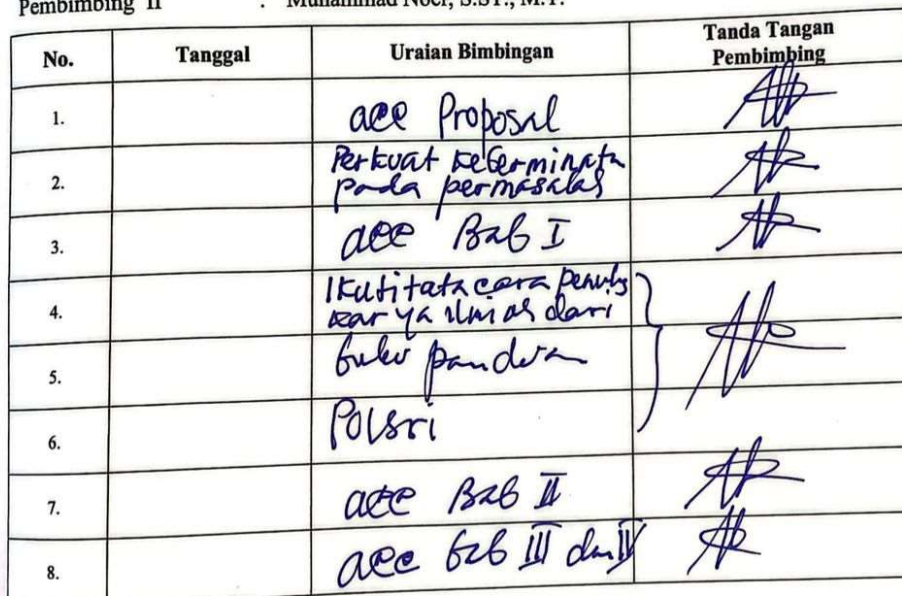 Pembimbing II : Muhammad Noer, S.ST., M.T.
No. Tanggal Uraian Bimbingan Tanda Tangan Pembimbing
1. acc Proposal
2. Perkuat
pada
3. acc Bab I
4. Ikuti tata cara penulis
karya ilmiah dari
5. buku panduan
6. Polsri
7. acc Bab II
8. acc bab III dan IV